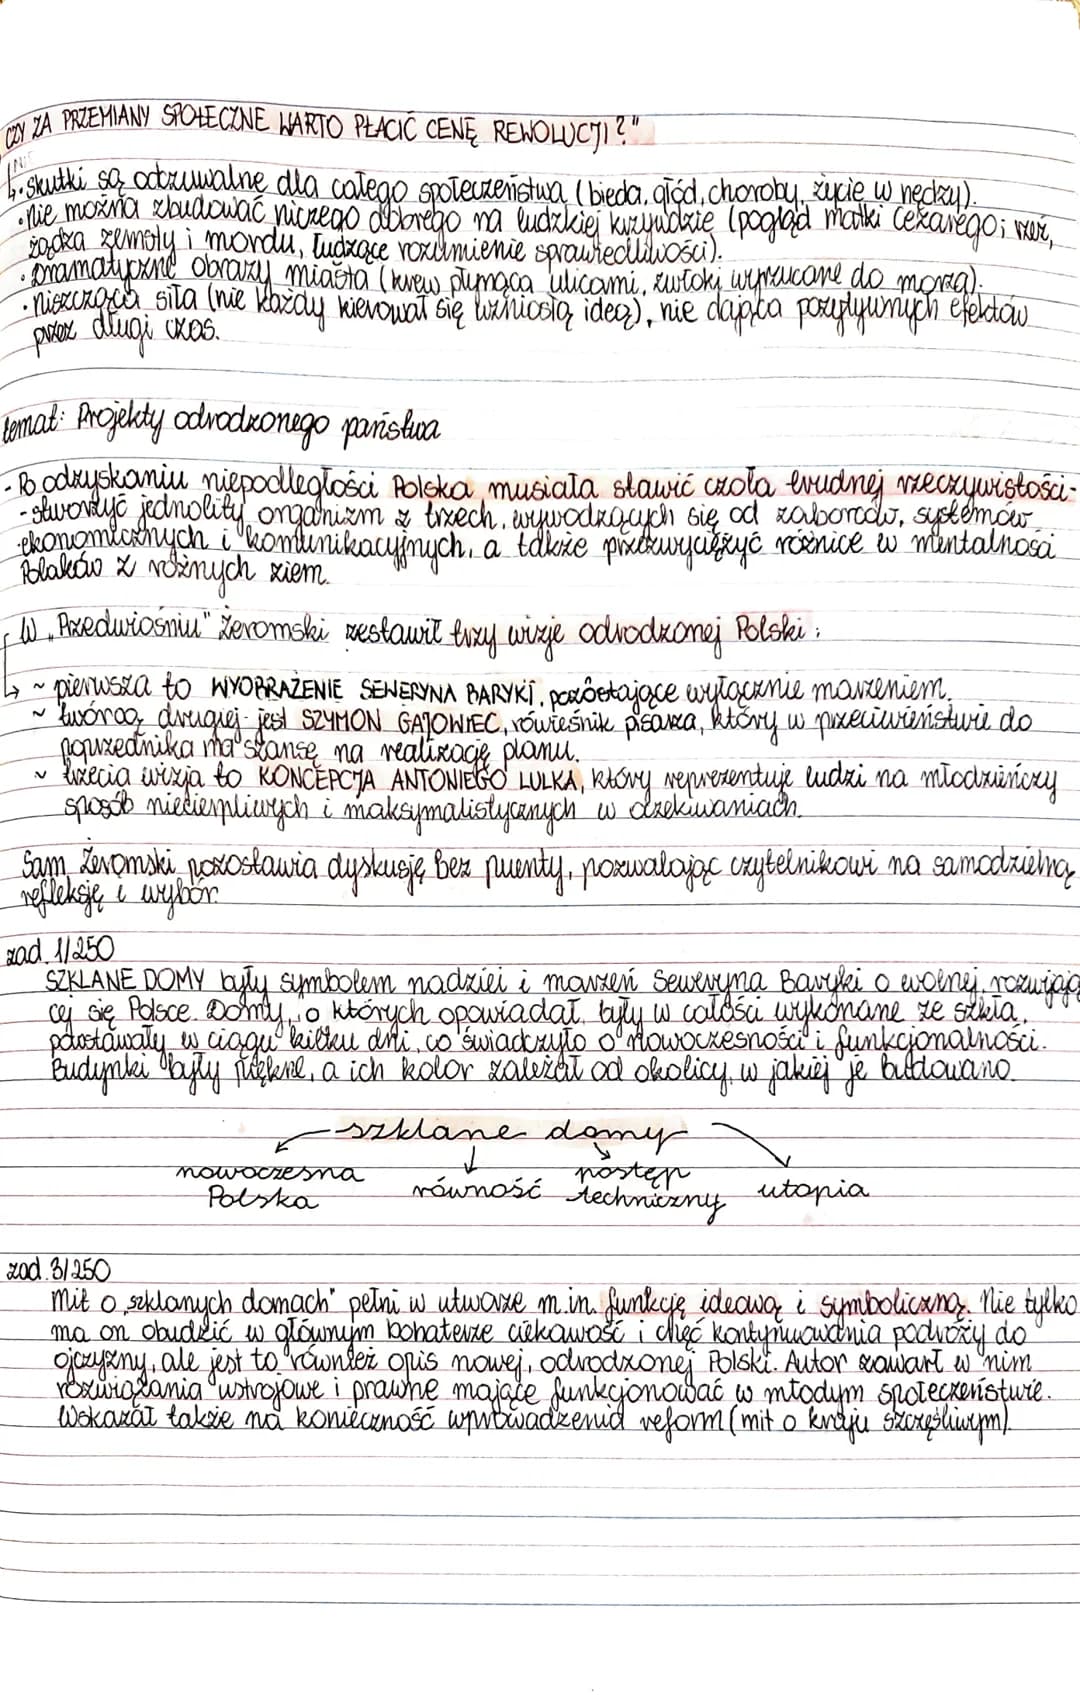 CZY ZA PRZEMIANY SPOŁECZNE WARTO PŁACIĆ CENĘ REWOLUCJI?"
NIE
• skutki są odczuwalne dla całego społeczeństwa (bieda, głód, choroby, życie w nędzy).
• nie można zbudować niczego dobrego na ludzkiej krzywdzie (pogląd matki Cezarego; rzeź,
żądza zemsty i mordu, łudzące rozumienie sprawiedliwości).
• Dramatyczne obrazy miasta (krew płynąca ulicami, zwłoki wyrzucane do morza).
• niszcząca siła (nie każdy kierował się wzniosłą ideą), nie dająca pozytywnych efektów
przez długi czas.
temat: Projekty odrodzonego państwa
- Po odzyskaniu niepodległości Polska musiała stawić czoła trudnej rzeczywistości -
- stworzyć jednolity organizm z trzech, wywodzących się od zaborców, systemów
ekonomicznych i komunikacyjnych, a także przezwyciężyć różnice w mentalności
Polaków z różnych ziem.
W „Przedwiośniu" Żeromski zestawił trzy wizje odrodzonej Polski:
↳ ~ pierwsza to WYOBRAŻENIE SEWERYNA BARYKI, pozostające wyłącznie marzeniem.
~ twórcą drugiej jest SZYMON GAJOWIEC, rówieśnik pisarza, który w przeciwieństwie do
poprzednika ma szansę na realizację planu.
~ trzecia wizja to KONCEPCJA ANTONIEGO LULKA, który reprezentuje ludzi na młodzieńczy
sposób niecierpliwych i maksymalistycznych w oczekiwaniach.
Sam Żeromski pozostawia dyskusję bez puenty, pozwalając czytelnikowi na samodzielną
refleksję i wybór.
zad. 1/250
SZKLANE DOMY były symbolem nadziei i marzeń Seweryna Baryki o wolnej, rozwijają
cej się Polsce. Domy, o których opowiadał, były w całości wykonane ze szkła,
powstawały w ciągu kilku dni, co świadczyło o nowoczesności i funkcjonalności.
Budynki były piękne, a ich kolor zależał od okolicy, w jakiej je budowano.
szklane domy
nowoczesna równość postęp utopia
Polska techniczny
zad. 3/250
Mit o „szklanych domach" pełni w utworze m.in. funkcję ideową i symboliczną. Nie tylko
ma on obudzić w głównym bohaterze ciekawość i chęć kontynuowania podróży do
ojczyzny, ale jest to również opis nowej, odrodzonej Polski. Autor zawarł w nim
rozwiązania ustrojowe i prawne mające funkcjonować w młodym społeczeństwie.
Wskazał także na konieczność wprowadzenia reform (mit o kraju szczęśliwym).